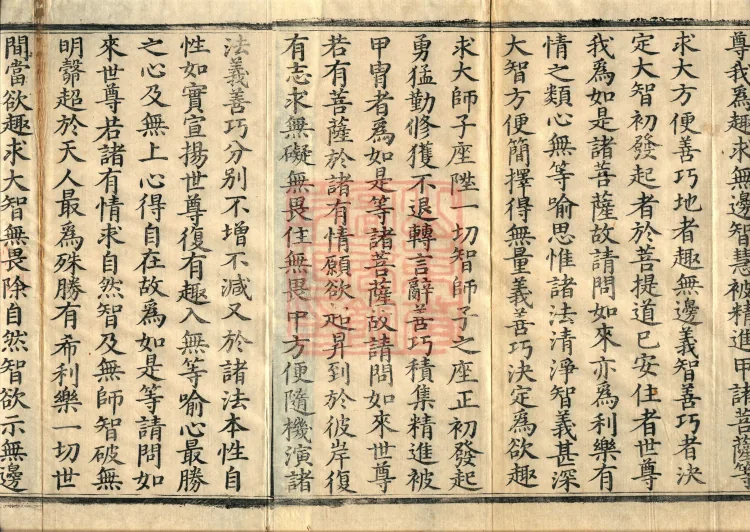 尊我爲趣求無邊智慧被精進甲諸菩薩等
求大方便善巧地者趣無邊義智善巧者決
定大智初發起者於菩提道已安住者世尊
我爲如是諸菩薩故請問如來亦爲利樂有
情之類心無等喻思惟諸法清淨智義甚深
大智方便簡擇得無量義善巧決定爲欲趣
求大師子座陞一切智師子之座正初發起
勇猛勤修獲不退轉言辭善巧積集精進被
甲冑者爲如是等諸菩薩故請問如來世尊
若有菩薩於諸有情願欲地昇到於彼岸復
有志求無礙無畏住無畏中方便隨機演諸
法義善巧分別不增不減又於諸法本性自
性如實宣揚世尊復有趣入無等喻心最勝
之心及無上心得自在故爲如是等請問如
來世尊若諸有情求自然智及無師智破無
明㲉超於天人最爲殊勝有希利樂一切世
間當欲趣求大智無畏除自然智欲示無邊